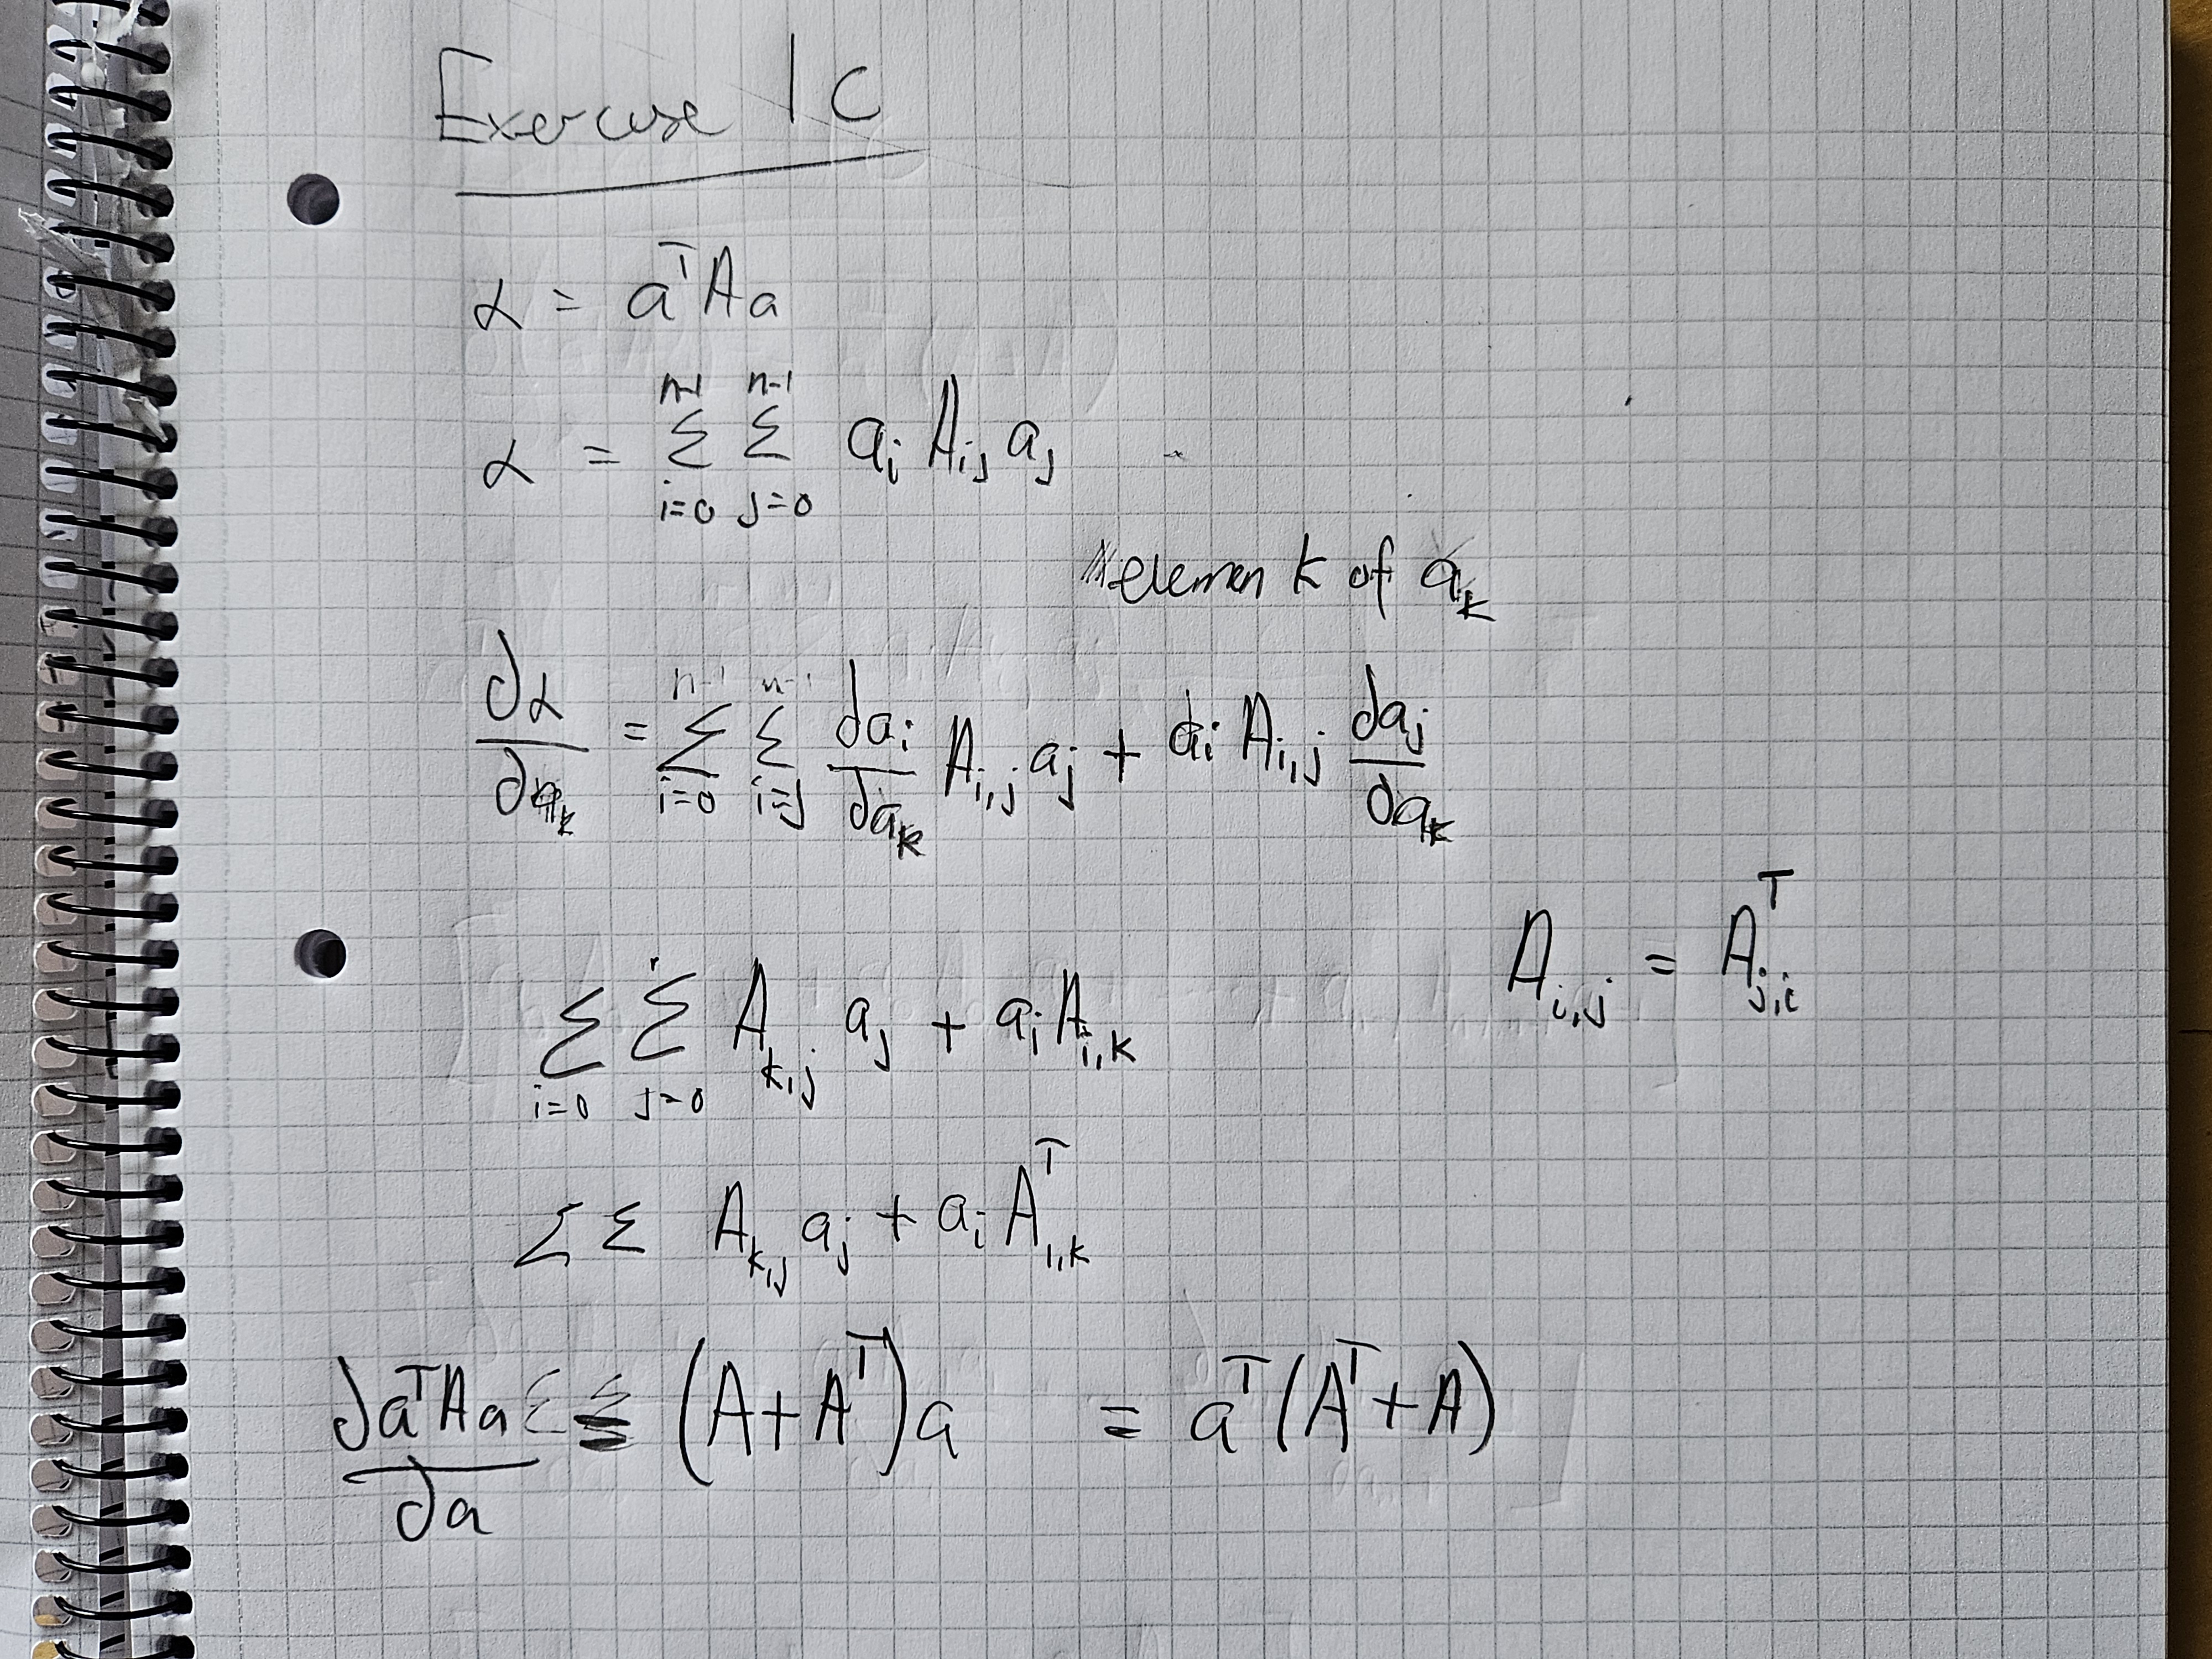 Exercise 1C
α = aᵀAa
α = ∑_{i=0}^{n-1} ∑_{j=0}^{n-1} a_i A_{ij} a_j
elemen k of a_k
∂α/∂a_k = ∑_{i=0}^{n-1} ∑_{i=j}^{n-1} ∂a_i/∂a_k A_{i,j} a_j + a_i A_{i,j} ∂a_j/∂a_k
A_{i,j} = Aᵀ_{j,i}
∑_{i=0} ∑_{j=0} A_{k,j} a_j + a_i A_{i,k}
∑ ∑ A_{k,j} a_j + a_i Aᵀ_{i,k}
∂aᵀAa/∂a = (A+Aᵀ)a = aᵀ(Aᵀ+A)